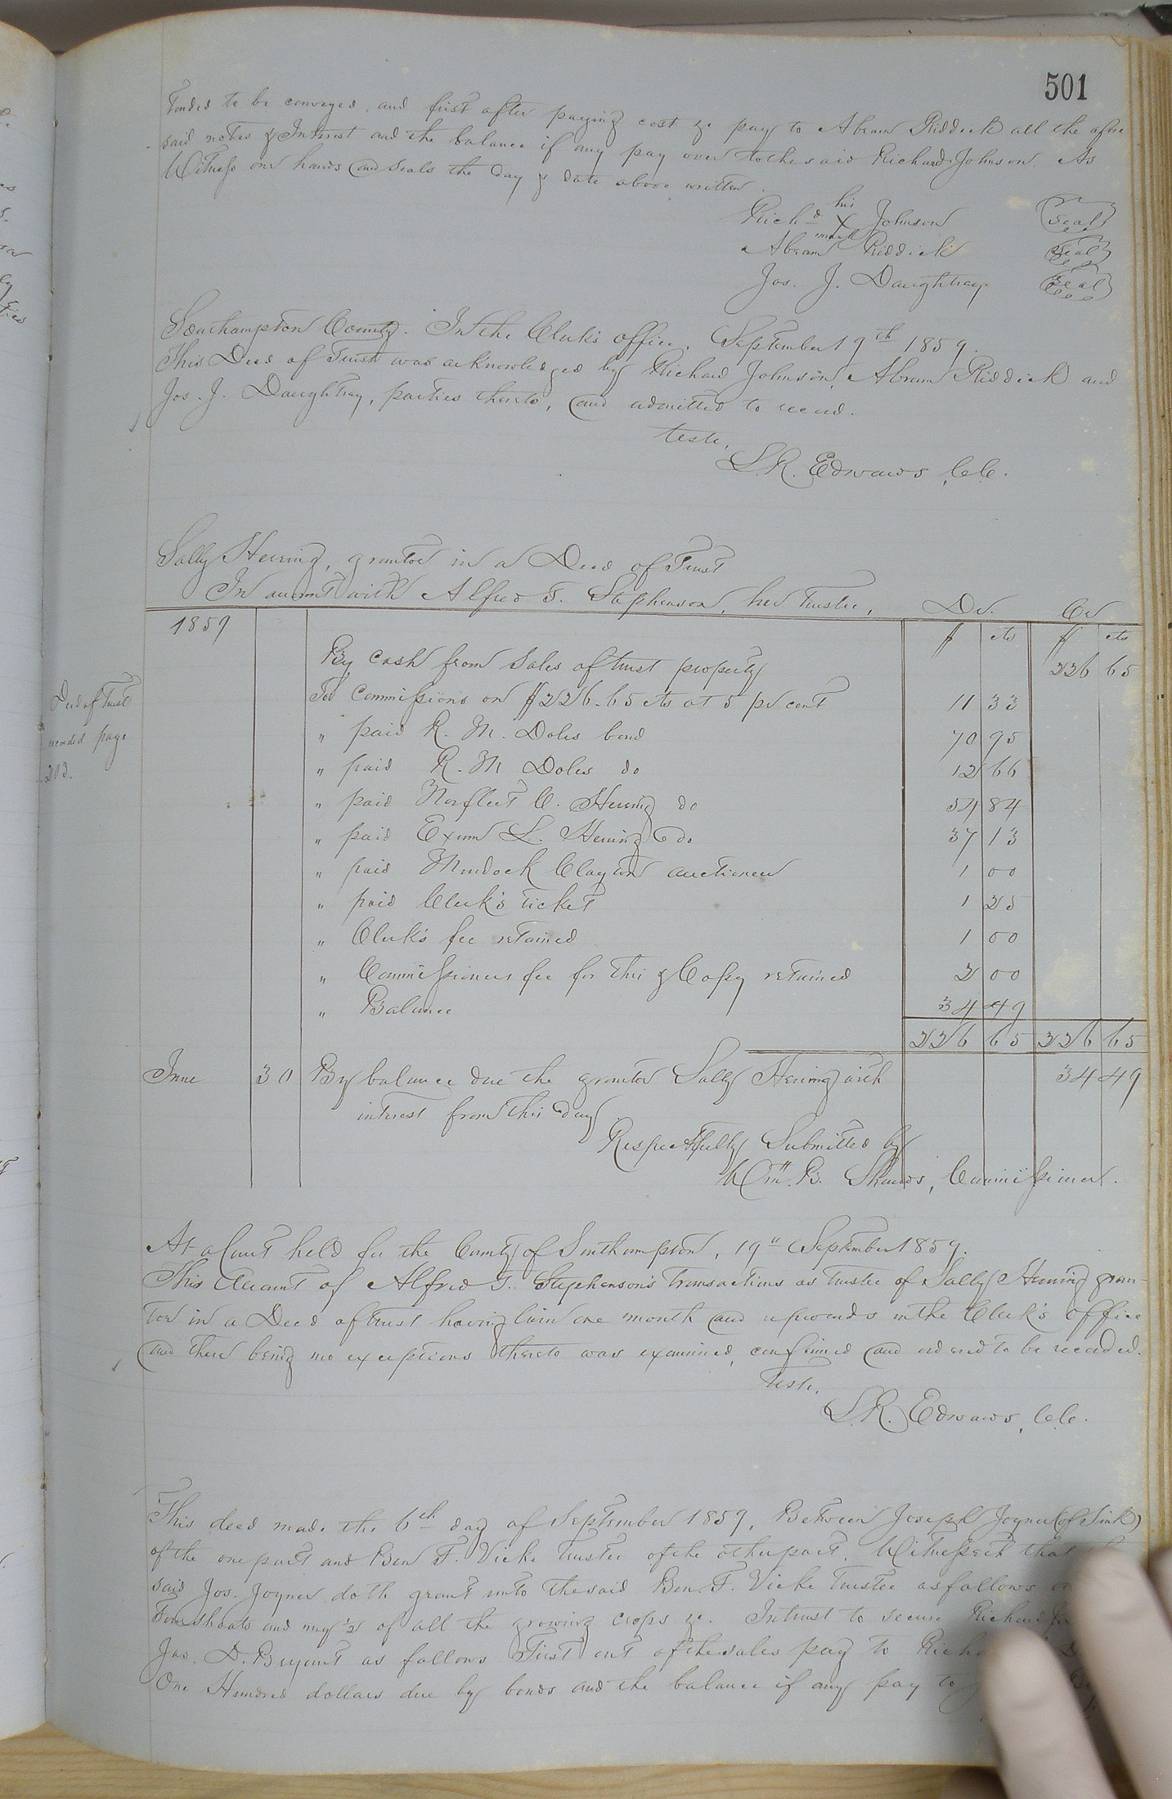 501
tended to be conveyed, and first after paying cost &c pay to Abram Riddick all the afore
said notes & Interest and the balance if any pay over to the said Richard Johnson As
Witness our hands and seals the day & date above written.
his
Richd X Johnson Seal
mark
Abram Riddick Seal
Jos. J. Daughtrey Seal
Southampton County. In the Clerk's office, September 19th 1859.
This Deed of Trust was acknowledged by Richard Johnson, Abram Riddick and
Jos. J. Daughtrey, parties thereto, and admitted to record.
Teste,
L. R. Edwards, C.C.
Sally Herring, grantor in a Deed of Trust
In account with Alfred T. Stephenson, her Trustee, Dr. Cr
1859 $ cts $ cts
By cash from sales of trust property 226 65
To commissions on $226.65 cts at 5 pr cent 11 33
" paid R. M. Doles bond 70 95
" paid R. M Doles do 12 66
Deed of Trust
recorded page
213.
" paid Norfleet C. Herring do 54 84
" paid Exum L. Herring do 37 13
" paid Murdock Clayton auctioneer 1 00
" paid Clerk's ticket 1 25
" Clerk's fee retained 1 00
" Commissioners fee for this & Copy retained 2 00
" Balance 34 49
226 65 226 65
June 30 By balance due the grantor Sally Herring with 34 49
interest from this day
Respectfully Submitted by
Wm. B. Shands, Commissioner.
At a Court held for the County of Southampton, 19th September 1859.
This Account of Alfred T. Stephenson's transactions as trustee of Sally Herring gran-
tor in a Deed of trust having lain one month and upwards in the Clerk's office
and there being no exceptions thereto was examined, confirmed and ordered to be recorded.
Teste,
L. R. Edwards, C.C.
This deed made the 6th day of September 1859, Between Joseph Joyner (of Sink)
of the one part and Ben F. Vick Trustee of the other part. Witnesseth that
said Jos. Joyner doth grant unto the said Ben. F. Vick Trustee as follows
Four shoats and my ½ of all the growing crops &c. In trust to secure Richard
Jas. D. Bryant as follows First out of the sales pay to Rich
One Hundred dollars due by bonds and the balance if any pay to